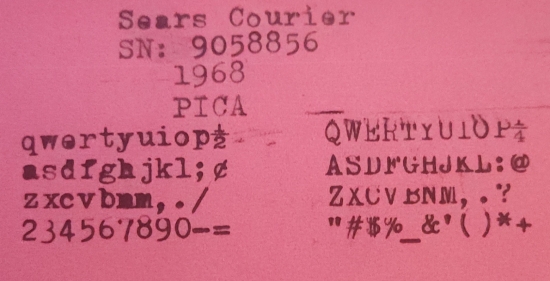 Sears Courier
SN: 9058856
1968
PICA
qwertyuiop½
asdfghjkl;¢
zxcvbnm,./
234567890-=
QWERTYUIOP¼
ASDFGHJKL:@
ZXCVBNM,.?
"#$%_&'()*+